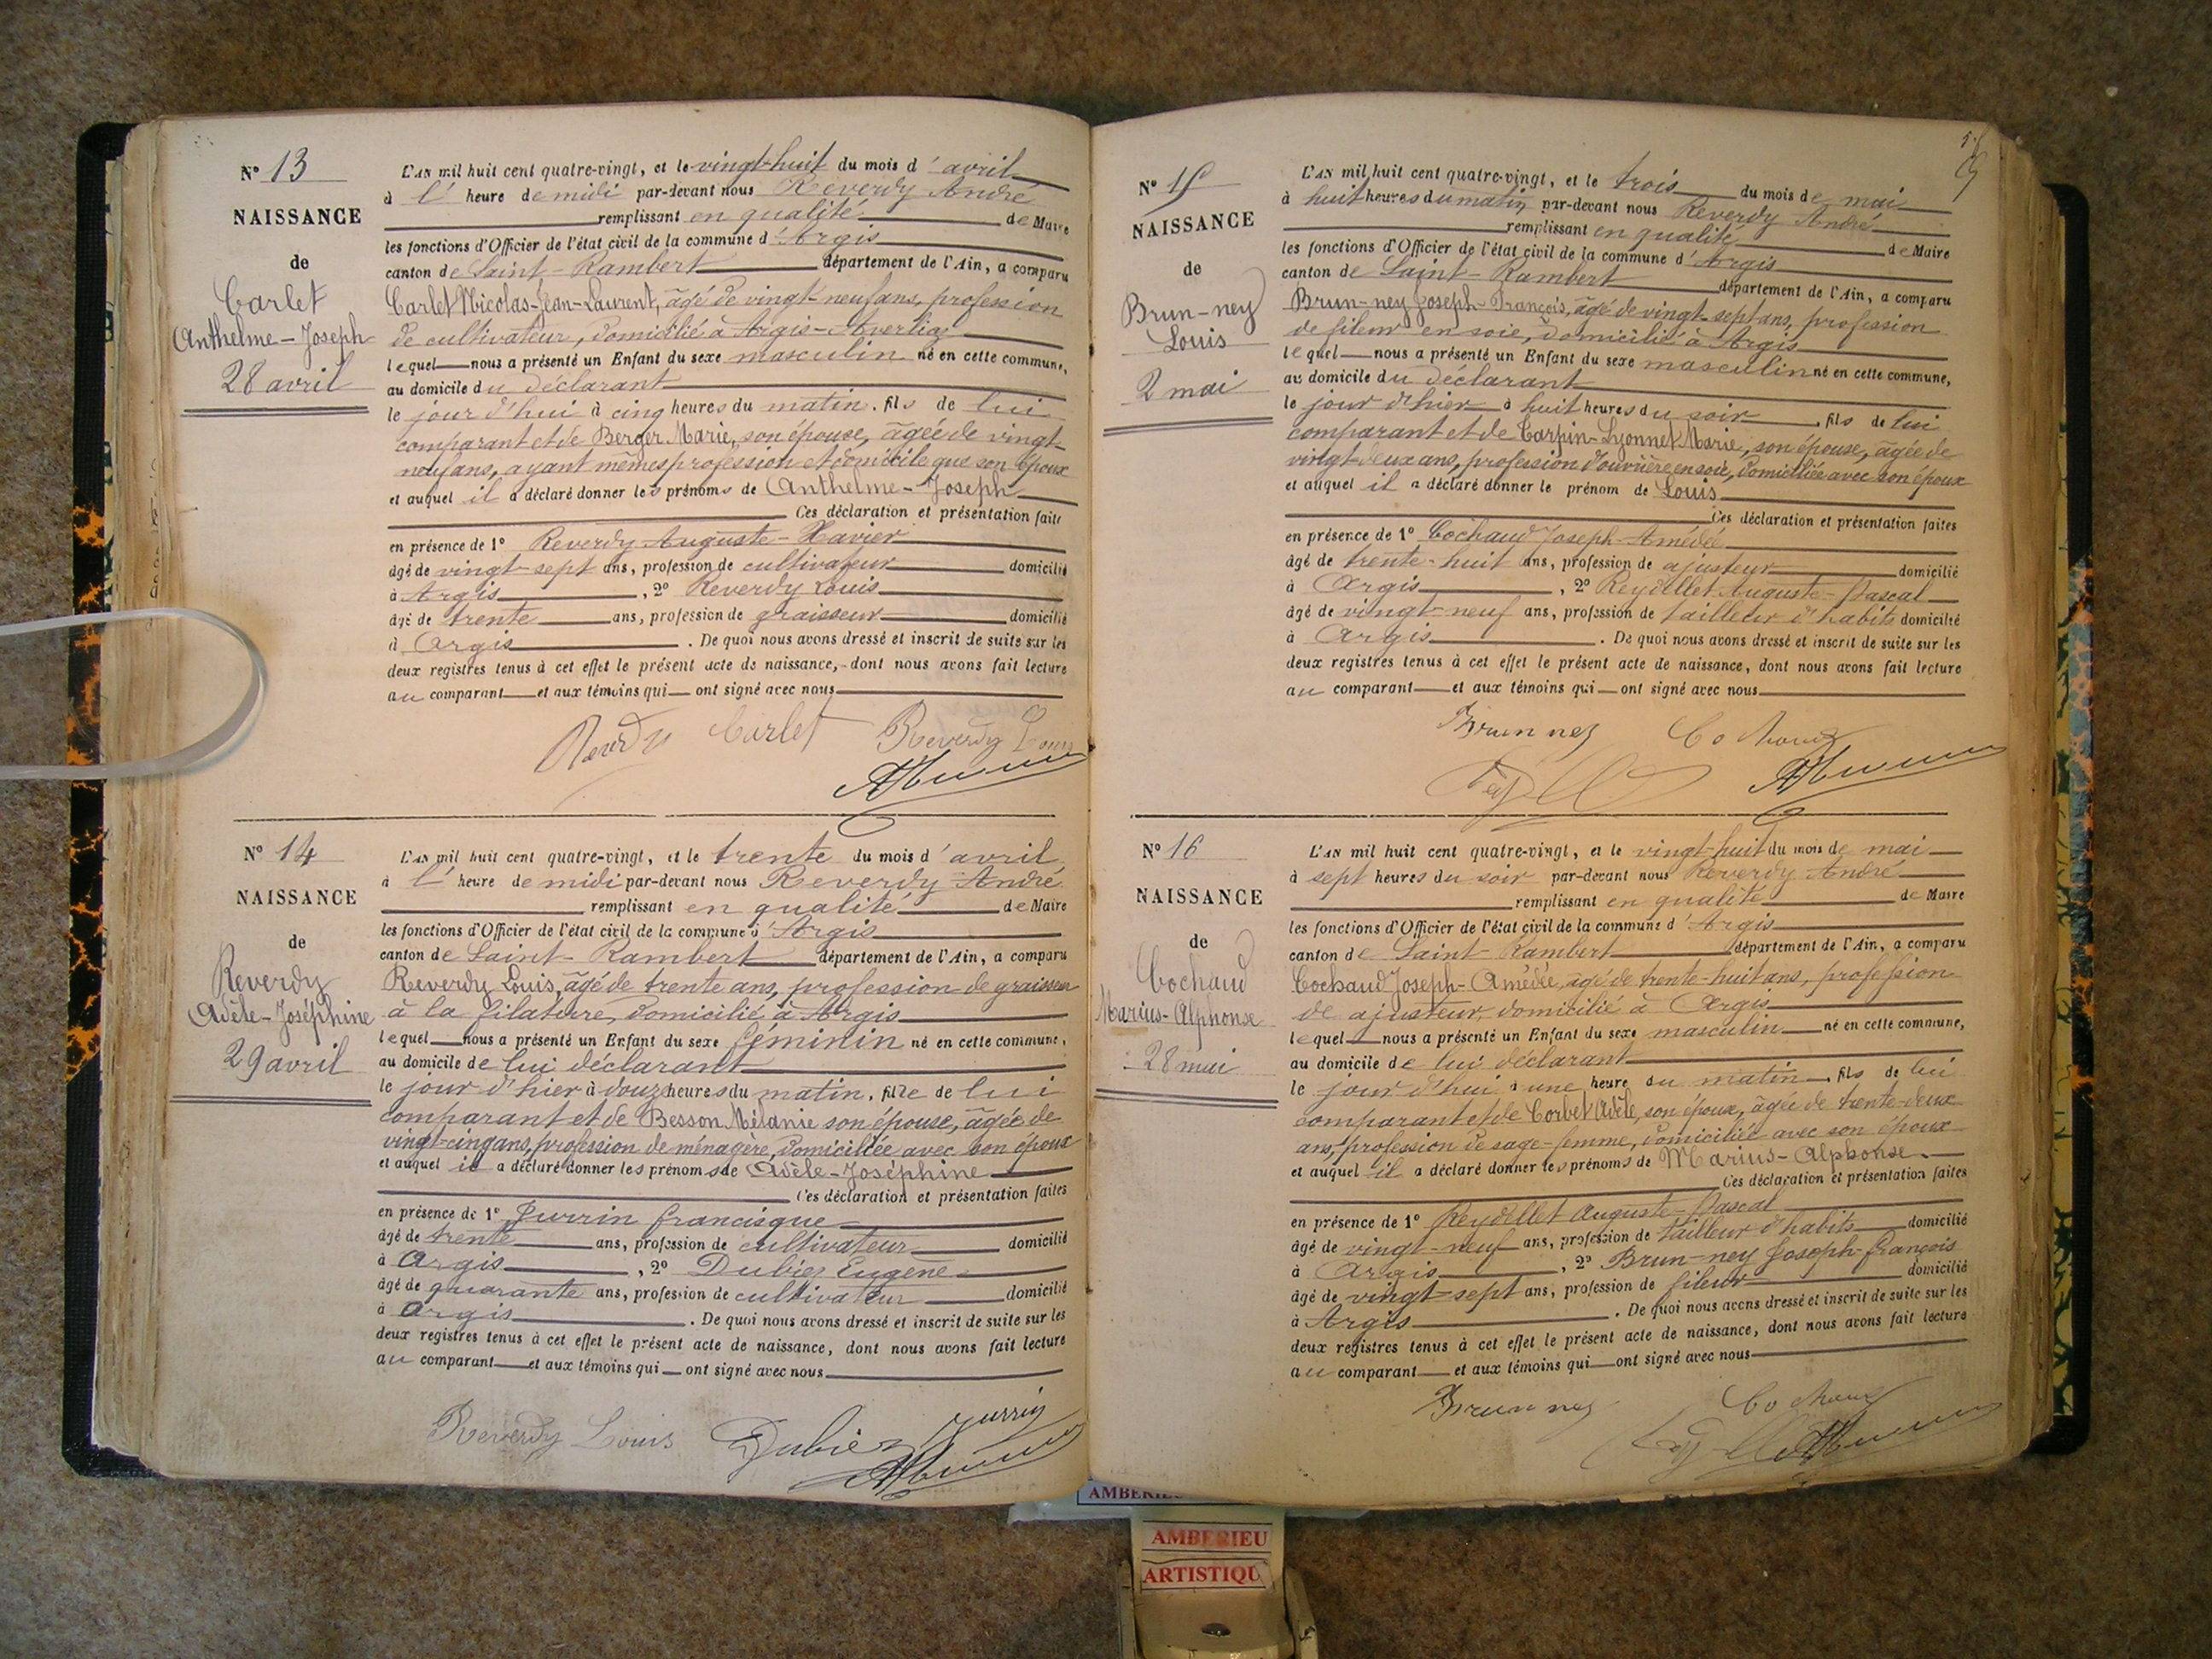 N° 13
NAISSANCE
de
Carlet
Anthelme-Joseph
28 avril
L'AN mil huit cent quatre-vingt, et le vingt-huit du mois d'avril
à l'heure de midi par-devant nous Reverdy André
remplissant en qualité de Maire
les fonctions d'Officier de l'état civil de la commune d'Argis
canton de Saint-Rambert département de l'Ain, a comparu
Carlet Nicolas-Jean-Laurent, âgé de vingt-neuf ans, profession
de cultivateur, domicilié à Argis-Averliaz
lequel nous a présenté un Enfant du sexe masculin né en cette commune,
au domicile du déclarant
le jour d'hui à cinq heures du matin, fils de lui
comparant et de Berger Marie, son épouse, âgée de vingt-
neuf ans, ayant mêmes profession et domicile que son époux
et auquel il a déclaré donner les prénoms de Anthelme-Joseph
Ces déclaration et présentation faites
en présence de 1° Reverdy Auguste-Xavier
âgé de vingt-sept ans, profession de cultivateur domicilié
à Argis, 2° Reverdy Louis
âgé de trente ans, profession de graisseur domicilié
à Argis. De quoi nous avons dressé et inscrit de suite sur les
deux registres tenus à cet effet le présent acte de naissance, dont nous avons fait lecture
au comparant et aux témoins qui ont signé avec nous
Reverdy Carlet Reverdy Louis
N° 14
NAISSANCE
de
Reverdy
Adèle-Joséphine
29 avril
L'AN mil huit cent quatre-vingt, et le trente du mois d'avril
à l'heure de midi par-devant nous Reverdy André
remplissant en qualité de Maire
les fonctions d'Officier de l'état civil de la commune d'Argis
canton de Saint-Rambert département de l'Ain, a comparu
Reverdy Louis, âgé de trente ans, profession de graisseur
à la filature, domicilié à Argis
lequel nous a présenté un Enfant du sexe féminin né en cette commune,
au domicile de lui déclarant
le jour d'hier à douze heures du matin, fille de lui
comparant et de Besson Mélanie son épouse, âgée de
vingt-cinq ans, profession de ménagère, domiciliée avec son époux
et auquel il a déclaré donner les prénoms de Adèle-Joséphine
Ces déclaration et présentation faites
en présence de 1° Jurrin françisque
âgé de trente ans, profession de cultivateur domicilié
à Argis, 2° Dubiez Eugène
âgé de quarante ans, profession de cultivateur domicilié
à Argis. De quoi nous avons dressé et inscrit de suite sur les
deux registres tenus à cet effet le présent acte de naissance, dont nous avons fait lecture
au comparant et aux témoins qui ont signé avec nous
Reverdy Louis Dubiez Jurrin
N° 15
NAISSANCE
de
Brun-ney
Louis
2 mai
L'AN mil huit cent quatre-vingt, et le trois du mois de mai
à huit heures du matin par-devant nous Reverdy André
remplissant en qualité de Maire
les fonctions d'Officier de l'état civil de la commune d'Argis
canton de Saint-Rambert département de l'Ain, a comparu
Brun-ney Joseph-François, âgé de vingt-sept ans, profession
de fileur en soie, domicilié à Argis
lequel nous a présenté un Enfant du sexe masculin né en cette commune,
au domicile du déclarant
le jour d'hier à huit heures du soir, fils de lui
comparant et de Carpin-Lyonnet Marie, son épouse, âgée de
vingt-deux ans, profession d'ouvrière en soie, domiciliée avec son époux
et auquel il a déclaré donner le prénom de Louis
Ces déclaration et présentation faites
en présence de 1° Cochaud Joseph-Amédée
âgé de trente-huit ans, profession de ajusteur domicilié
à Argis, 2° Reydellet Auguste-Pascal
âgé de vingt-neuf ans, profession de tailleur d'habits domicilié
à Argis. De quoi nous avons dressé et inscrit de suite sur les
deux registres tenus à cet effet le présent acte de naissance, dont nous avons fait lecture
au comparant et aux témoins qui ont signé avec nous
Brun ney Cochaud
N° 16
NAISSANCE
de
Cochaud
Marius-Alphonse
28 mai
L'AN mil huit cent quatre-vingt, et le vingt-huit du mois de mai
à sept heures du soir par-devant nous Reverdy André
remplissant en qualité de Maire
les fonctions d'Officier de l'état civil de la commune d'Argis
canton de Saint-Rambert département de l'Ain, a comparu
Cochaud Joseph-Amédée, âgé de trente-huit ans, profession
de ajusteur, domicilié à Argis
lequel nous a présenté un Enfant du sexe masculin né en cette commune,
au domicile de lui déclarant
le jour d'hui à une heure du matin, fils de lui
comparant et de Corbet Adèle, son épouse, âgée de trente-deux
ans, profession de sage-femme, domiciliée avec son époux
et auquel il a déclaré donner les prénoms de Marius-Alphonse.
Ces déclaration et présentation faites
en présence de 1° Reydellet Auguste-Pascal
âgé de vingt-neuf ans, profession de tailleur d'habits domicilié
à Argis, 2° Brun-ney Joseph-François
âgé de vingt-sept ans, profession de fileur domicilié
à Argis. De quoi nous avons dressé et inscrit de suite sur les
deux registres tenus à cet effet le présent acte de naissance, dont nous avons fait lecture
au comparant et aux témoins qui ont signé avec nous
Brun ney Cochaud
AMBERIEU
ARTISTIQU